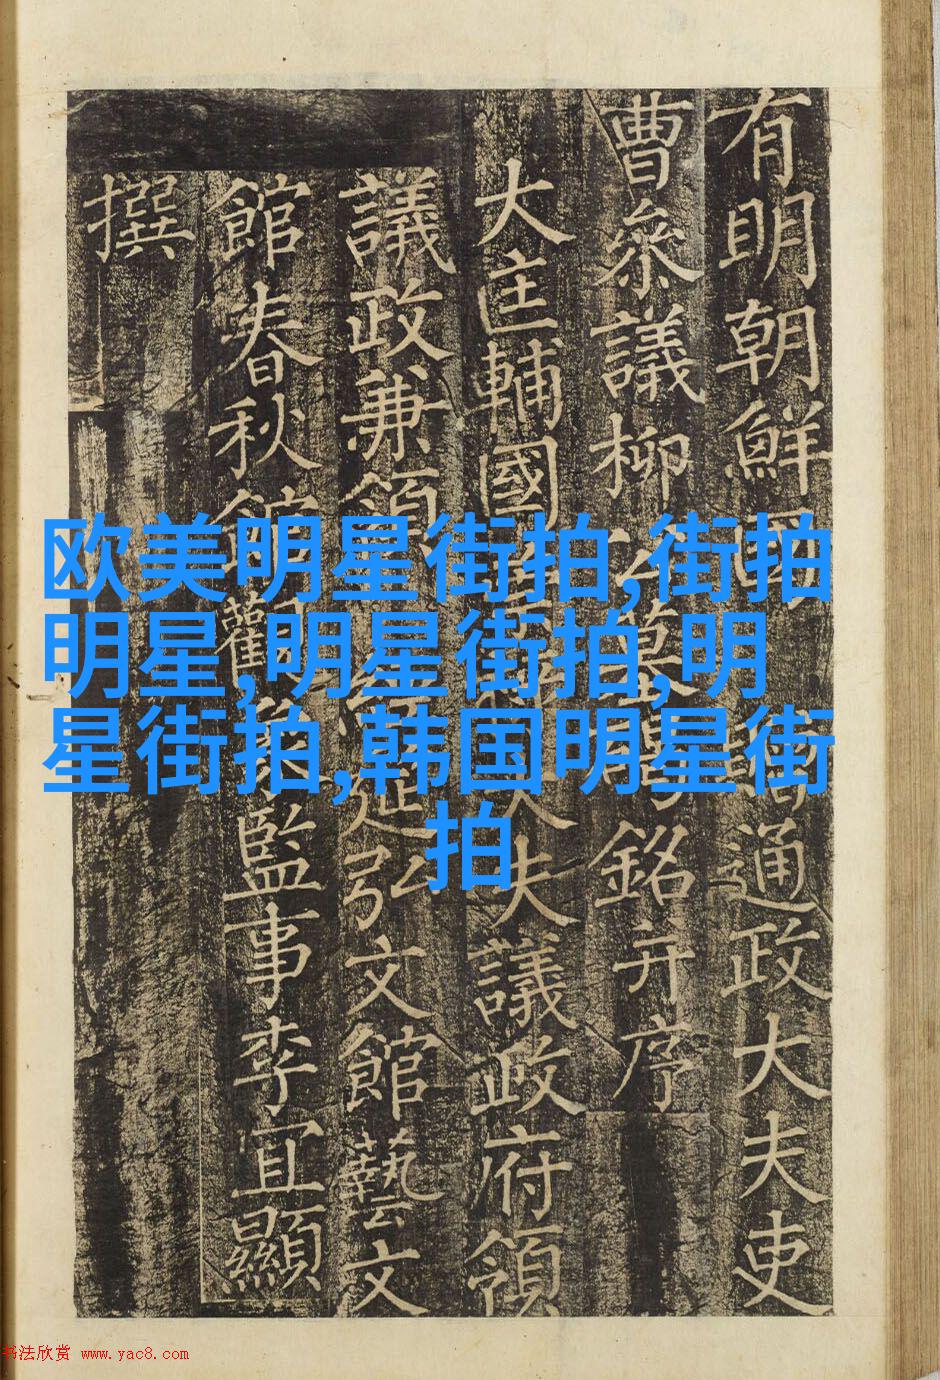 有明朝鮮國通政大夫吏
曹參議柳公墓碣銘并序
大匡輔國崇祿大夫議政府領
議政兼領經筵弘文館藝文
館春秋館觀象監事李宜顯
撰
欧美明星街拍,街拍
明星,明星街拍,明
星街拍,韩国明星街
拍
书法欣赏 www.yac8.com